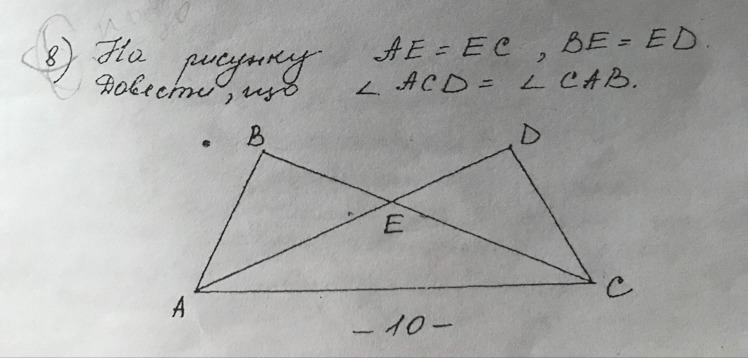 8) На рисунку AE = EC , BE = ED.
Довести, що ∠ ACD = ∠ CAB.
B
D
E
A
C
– 10 –